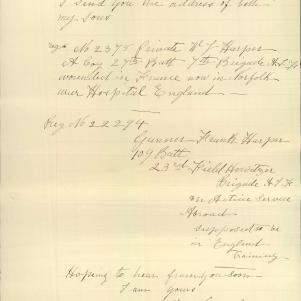 I send you the address of both
my sons
Reg No 2375 Private W J Harper
A Coy 27th Batt 7th Brigade A.I.F
wounded in France now in Norfolk
War Hospital England —
Reg No 22294
Gunner Frank Harper
109 Batt
23rd Field Howitzer
Brigade A.I.F
on Active Service
Abroad
supposed to be
in England
training
Hoping to hear from you soon
I am yours